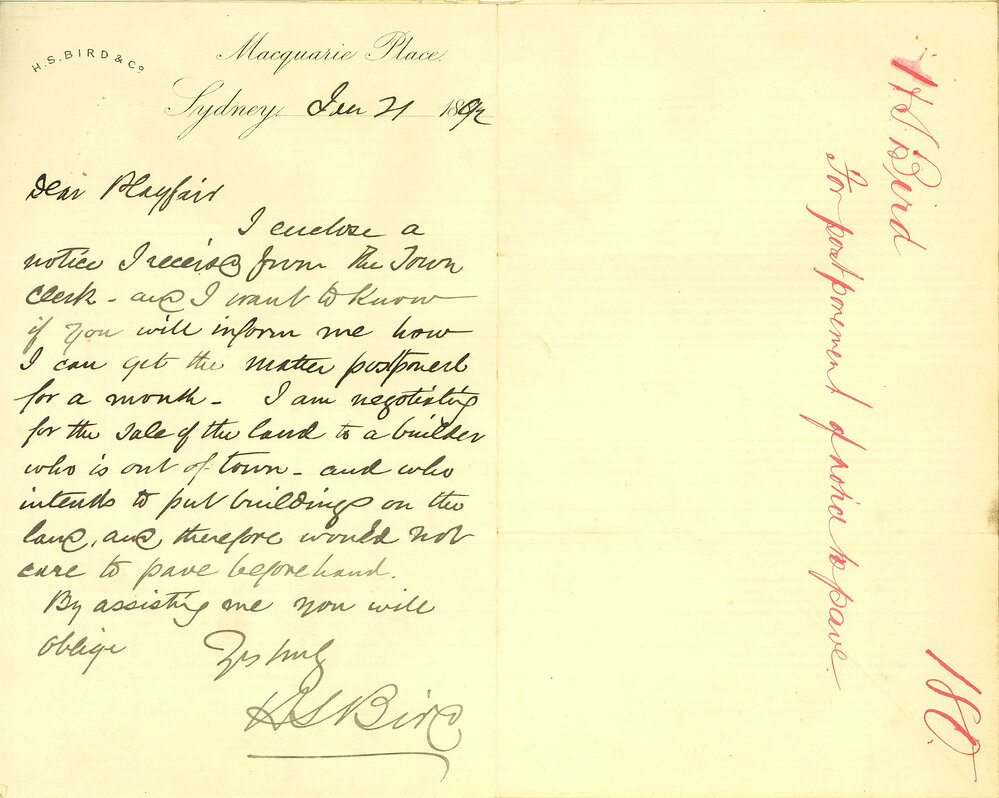 H.S. BIRD & Co
Macquarie Place.
Sydney, Jan 21 1892
Dear Playfair
I enclose a
notice I received from the Town
Clerk - and I want to know
if you will inform me how
I can get the matter postponed
for a month - I am negotiating
for the sale of the land to a builder
who is out of town - and who
intends to put buildings on the
land, and therefore would not
care to pave beforehand.
By assisting me you will
oblige
Yrs truly
H S Bird
H.S. Bird
For postponement of notice to pave.
180.